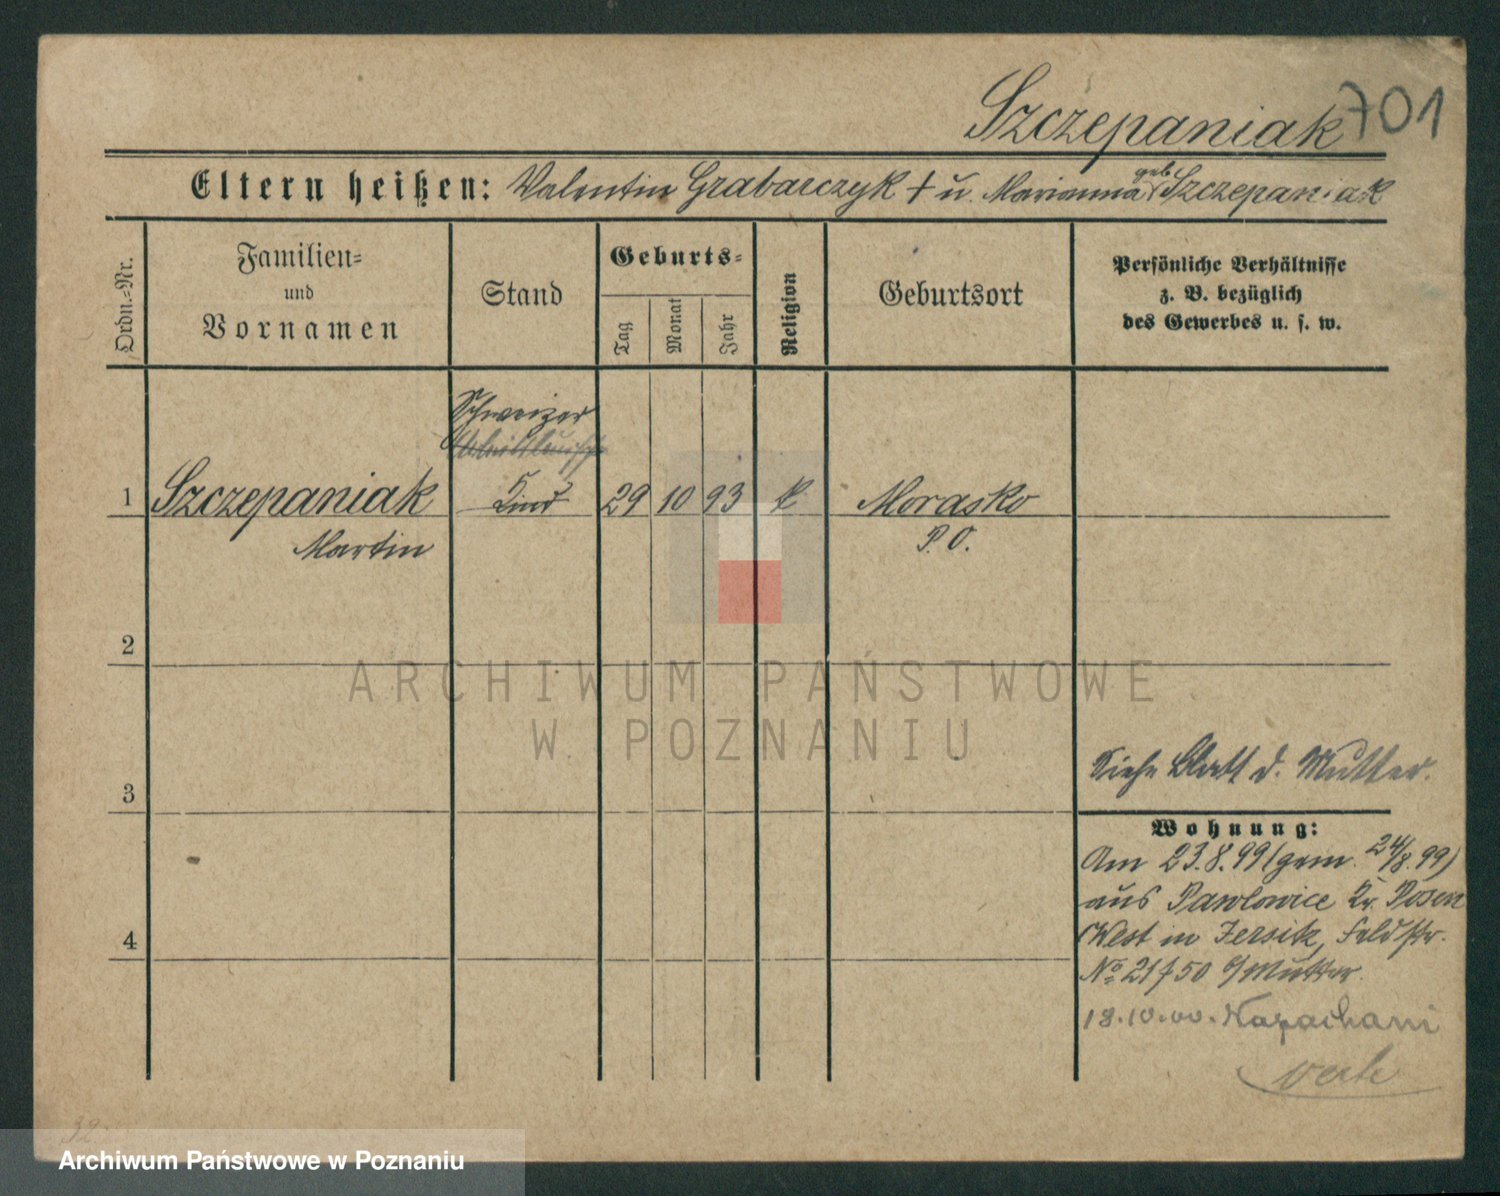 Szczepaniak 701
Eltern heißen: Valentin Grabarczyk + u. Marianna geb. Szczepaniak
Ordn.=Nr.
Familien=
und
Vornamen
Stand
Geburts=
Tag
Monat
Jahr
Religion
Geburtsort
Persönliche Verhältnisse
z. B. bezüglich
des Gewerbes u. s. w.
Schweizer
1 Szczepaniak Kind 29 10 93 k Morasko
Martin P. O.
2
ARCHIWUM PAŃSTWOWE
W POZNANIU
Siehe Blatt d. Mutter.
3
Wohnung:
Am 23.8.99 (gem. 24/8.99)
aus Pawlowice Kr. Posen
4 West in Jersitz, Feldstr.
No 21 f 50 b/Mutter.
18.10.00. Napachani
32
Archiwum Państwowe w Poznaniu